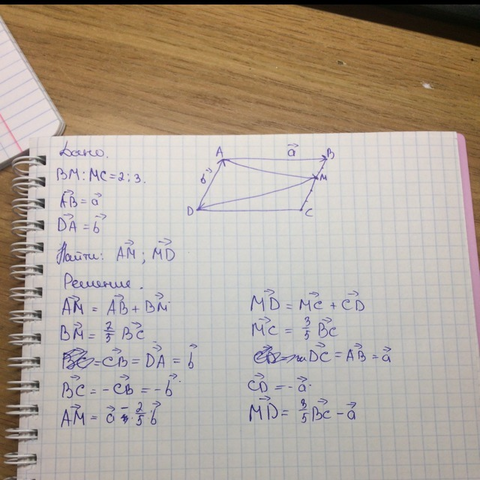 Дано.
A a⃗ B
BM:MC=2:3.
b⃗ M
AB⃗ = a⃗
D C
DA⃗ = b⃗
Найти: AM⃗ ; MD⃗
Решение.
AM⃗ = AB⃗ + BM⃗
BM⃗ = 2/5 BC⃗
= CB⃗ = DA⃗ = b⃗
BC⃗ = -CB⃗ = -b⃗
AM⃗ = a⃗ - 2/5 b⃗
MD⃗ = MC⃗ + CD⃗
MC⃗ = 3/5 BC⃗
DC⃗ = AB⃗ = a⃗
CD⃗ = -a⃗.
MD⃗ = 3/5 BC⃗ - a⃗